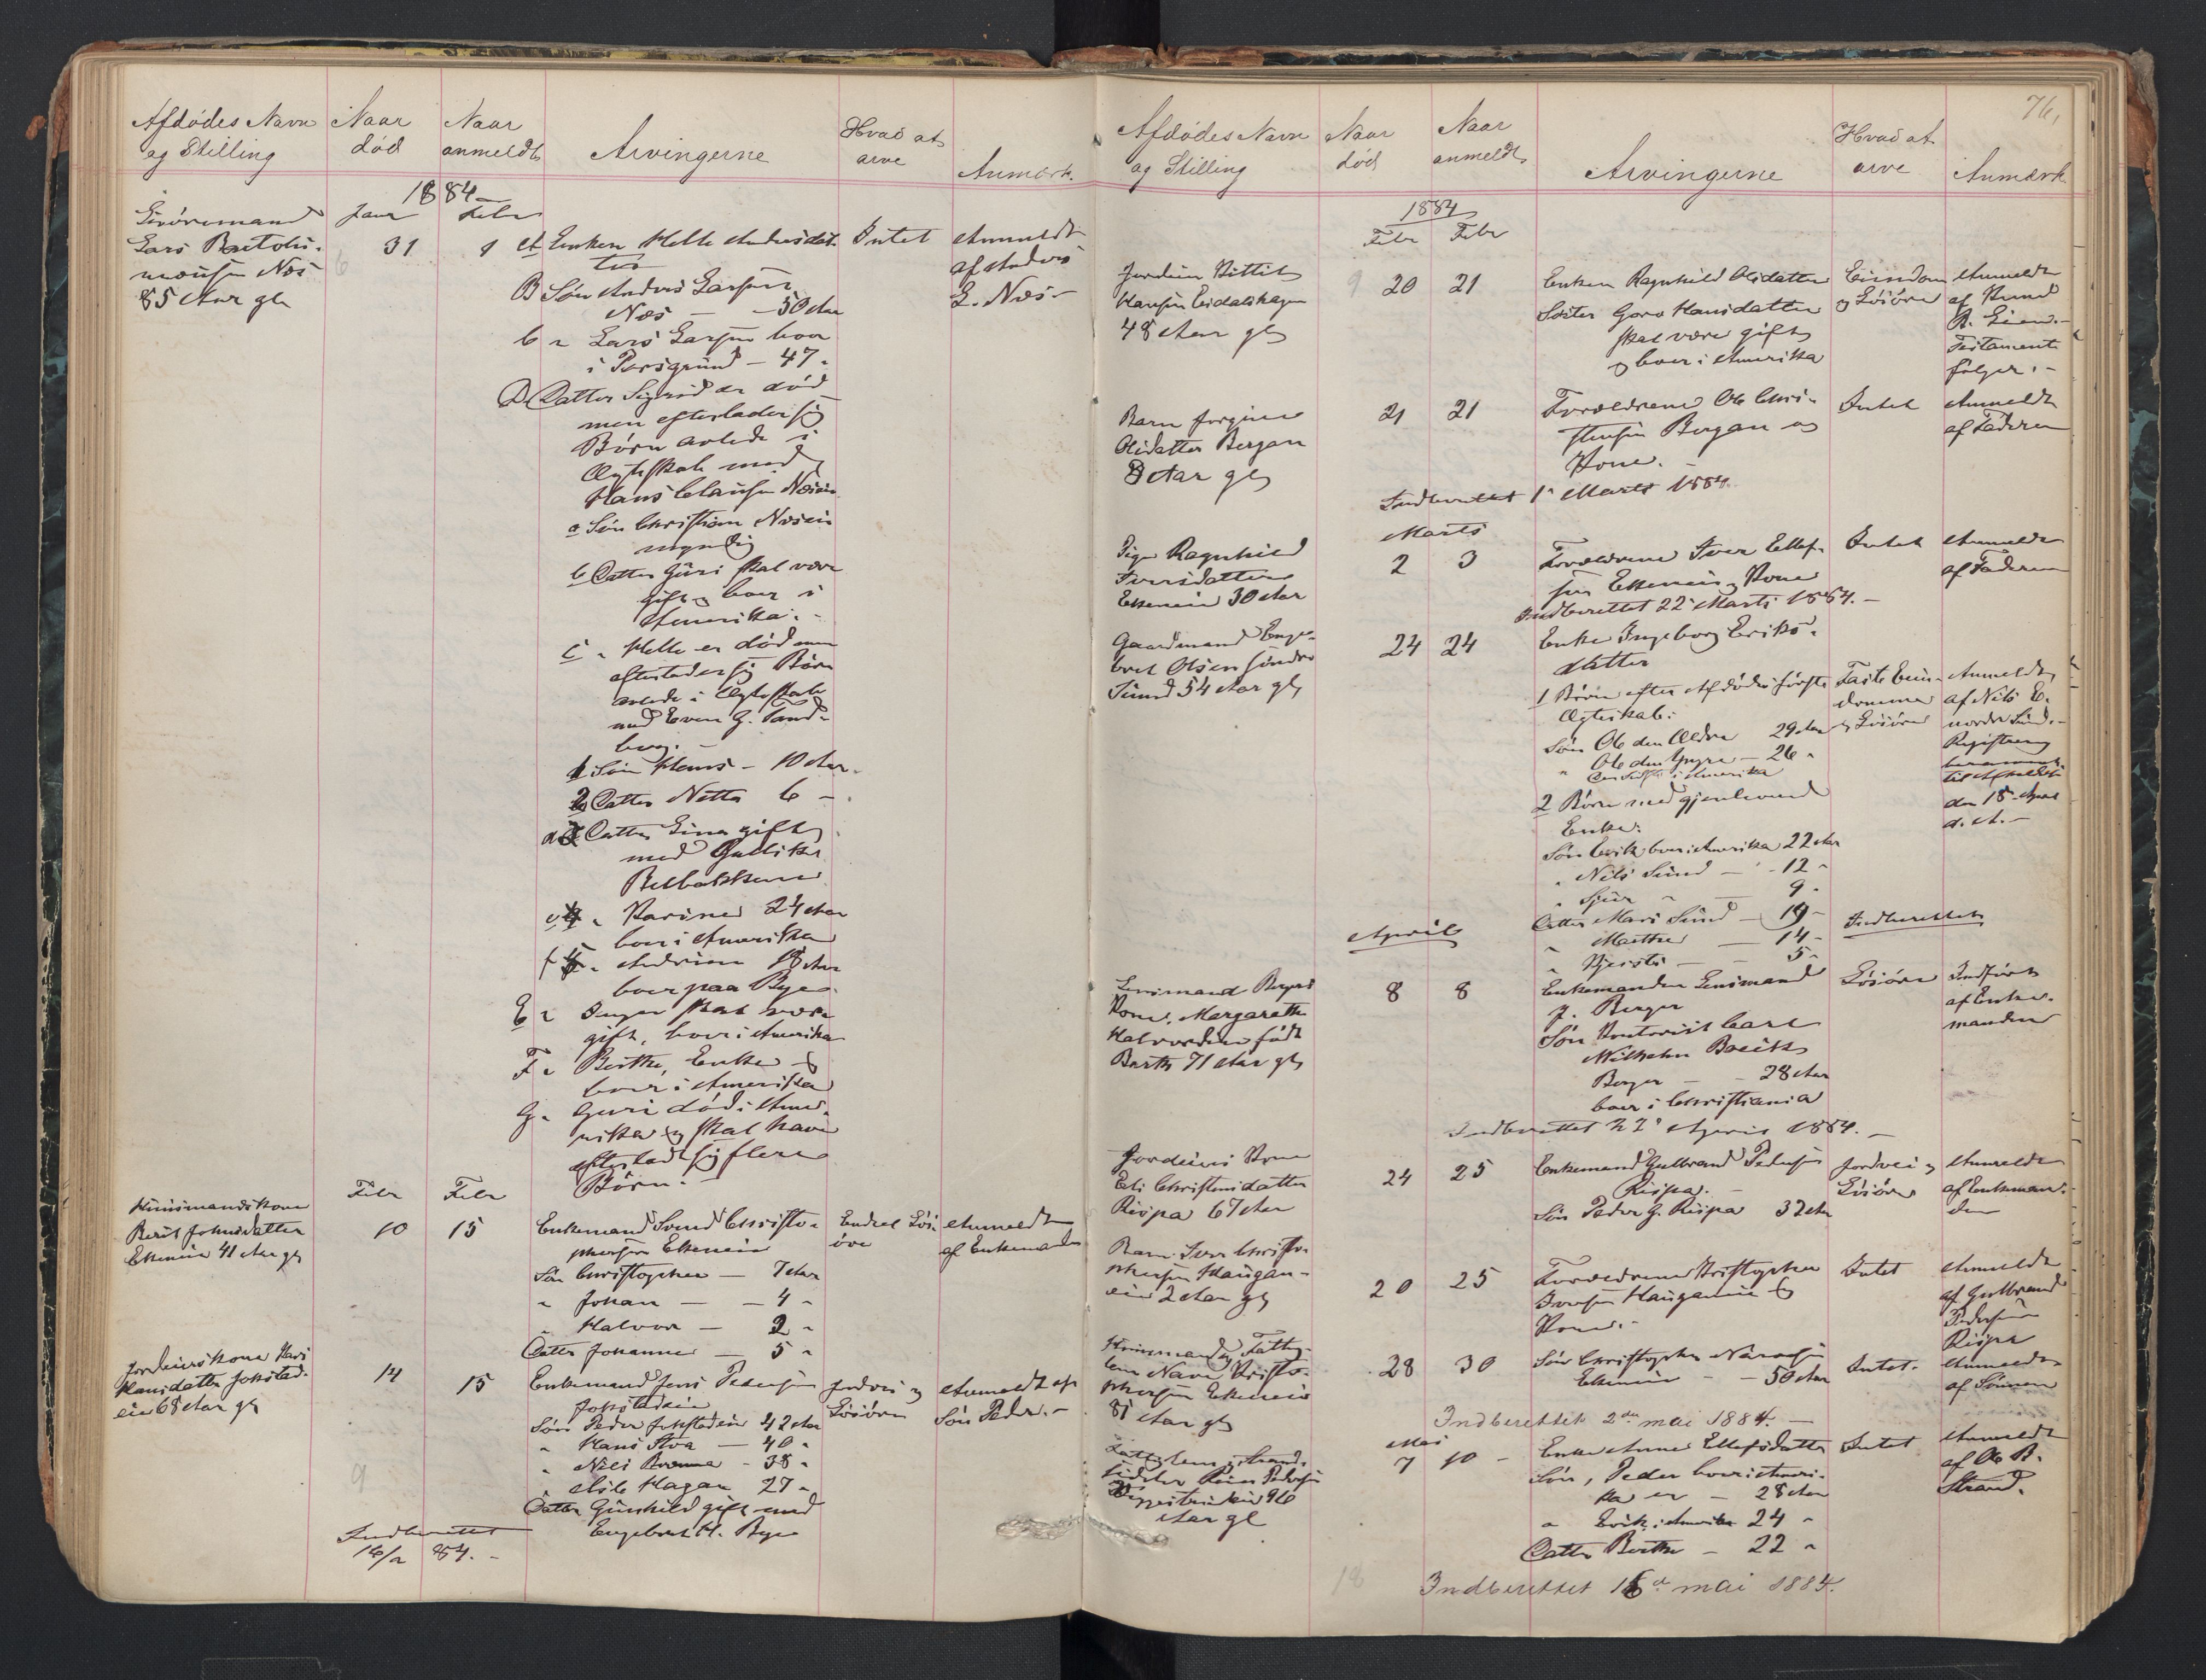 Afdødes Navn
og Stilling
Naar
død
Naar
anmeldt
Arvingerne
Hvad at
arve
Anmærk.
1884
Janr
Febr
Lars Bartolo-
mæusen Næs
85 Aar gl
31
A Enken Helle Andersdat-
ter
B Søn Anders Larsen
Næs — 50 Aar
C " Lars Larsen boer
i Porsgrund — 47 "
D Datter Sigrid er død
men efterlader sig
Børn avlede i
Ægteskab med
Hans Clausen
a Søn Christian
myndig
b Datter Guri skal være
gift og boer i
Amerika. -
c " Helle er død men
efterlader sig Børn
avlede i Ægteskab
med Even G. Sand-
berg. -
1 Søn Hans - 10 Aar.
2 Datter Netta 6 -
d Datter Lina gift
med Gullik
e " Karine 24 Aar
boer i Amerika
f " Andrine 18 Aar
boer paa Bye
E " Inger skal være
gift, boer i Amerika
F " Birthe, Enke og
boer i Amerika
G " Guri død i Ame-
rika og skal have
efterladt sig flere
Børn. -
Intet
Anmeldt
af Anders
L. Næs -
Huusmandskone
Berit Johnsdatter
Ekeneie 41 Aar gl
Febr
10
Febr
15
Enkemand Svend Christo-
phersen Ekeneie
Søn Christopher — 7 Aar
" Johan — 4 "
" Halvor — 2 "
Datter Johanne — 5 "
Endel Løs-
øre
Anmeldt
af Enkemanden
Jordeierskone Kari
Hansdatter Jokstad-
eie 68 Aar gl
14
15
Enkemand Jens Pedersen
Jokstadeie
Søn Peder Jokstadeie 42 Aar
" Hans Stva — 40 "
" Nils — 38 "
" Hagan 27 "
Datter Gunhild gift med
Engebret H. Bye
Jordvei og
Løsøre
Anmeldt af
Søn Peder. -
Indberettet
16/2 84. -
76,
Afdødes Navn
og Stilling
Naar
død
Naar
anmeldt
Arvingerne
Hvad at
arve
Anmærk
1884
Febr
Febr
Jordeier Kittil
Hansen Eidalshagen
48 Aar gl
20
21
Enken Ragnhild Olsdatter
Søster Goro Hansdatter
skal være gift
og boer i Amerika
Eiendom
og Løsøre
Anmeldt
af Knud
Testament
følger. -
Barn Jorgine
Olsdatter Bergan
8 Aar gl
21
21
Forældrene Ole Chri-
stensen Bergan og
Kone. -
Intet
Anmeldt
af Faderen
Indberettet 1 Marts 1884.
Marts
Pige Ragnhild
Iversdatter
Ekeneie 30 Aar
2
3
Forældrene Iver Ellef-
sen Ekeneie og Kone
Intet
Anmeldt
af Faderen
Indberettet 22 Marts 1884. -
Gaardmand Enge-
bret Olsen søndre
Sund 54 Aar gl
24
24
Enke Ingeborg Eriks-
datter
1 Børn efter Afdødes første
Ægteskab:
Søn Ole den Ældre 29 Aar
" Ole den Yngre — 26 "
i Amerika
2 Børn med gjenlevende
Enke:
Søn Erik boer i Amerika 22 Aar
" Nils Sund — 12 "
" Sjur " — 9 "
Datter Mari Sund — 19 -
" Marthe — 14 -
" Kjersti — 5 -
Faste Eien-
domme
og Løsøre
Anmeldt
af Nils E.
nordre Sund. -
Registrering
til Afholdelse
den 18 April
d. A. -
Indberettet
April
Lensmand Bergers
Kone, Margarethe
Halvordine født
Barth 71 Aar gl
8
8
Enkemanden Lensmand
J. Berger
Søn Kontorist Carl
Wilhelm
Berger — 28 Aar
boer i Christiania
Løsøre
Indført
af Enke-
manden
Indberettet 22 April 1884. -
Jordeiers Kone
Eli Christensdatter
Rispa 67 Aar
24
25
Enkemand Gulbrand Pedersen
Rispa. -
Søn Peder G. Rispa 32 Aar
Jordvei og
Løsøre
Anmeldt
af Enkeman-
den
Barn Iver Christo-
phersen Haugan-
eie 2 Aar gl
20
25
Forældrene Kristopher
Iversen Hauganeie og
Kone. -
Intet
Anmeldt
af Gulbrand
Pedersen
Rispa
Huusmand og Fattig-
lem Narve Kristo-
phersen Ekeneie
81 Aar gl
28
30
Søn Christopher Narvesen
Ekeneie — 50 Aar
Intet.
Anmeldt
af Sønnen
Indberettet 2den mai 1884. —
Mai
Fattiglem i Strand-
Pedersen
Aar gl
7
10
Enke Anne Ellefsdatter
Søn, Peder boer i Ameri-
ka er — 28 Aar
" Erik i Amerika 24 "
Datter Berthe — 22 "
Intet
Anmeldt
af Ole B.
Strand.
Indberettet 16d mai 1884.